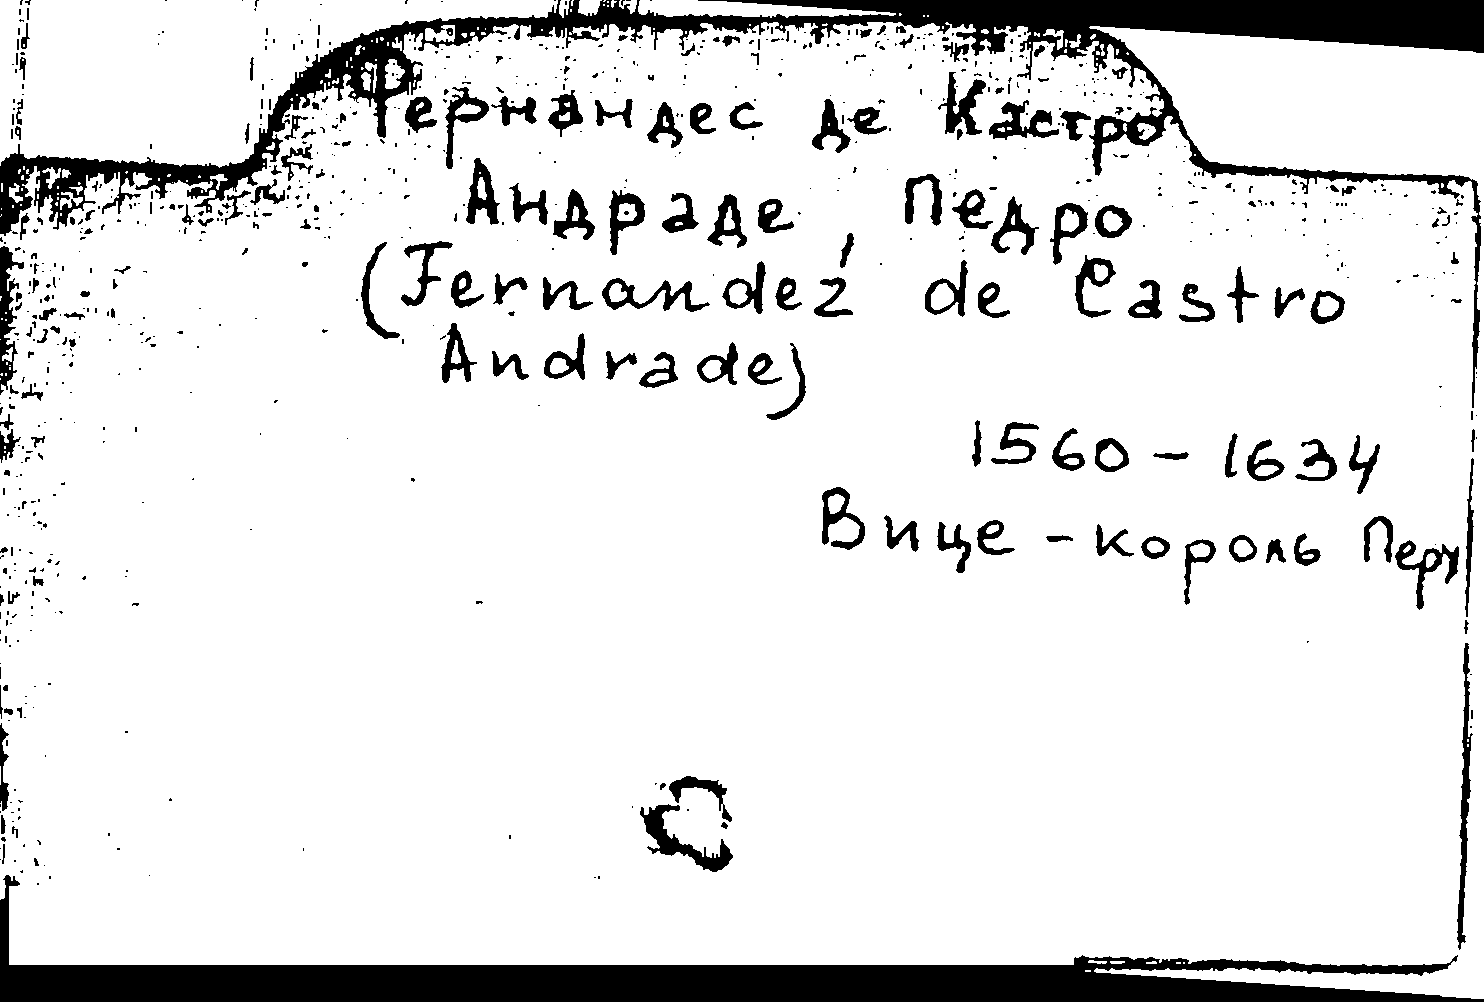 Фернандес де Кастро
Андраде, Педро
(Fernandez de Castro
Andrade)
1560 - 1634
Вице - король Перу